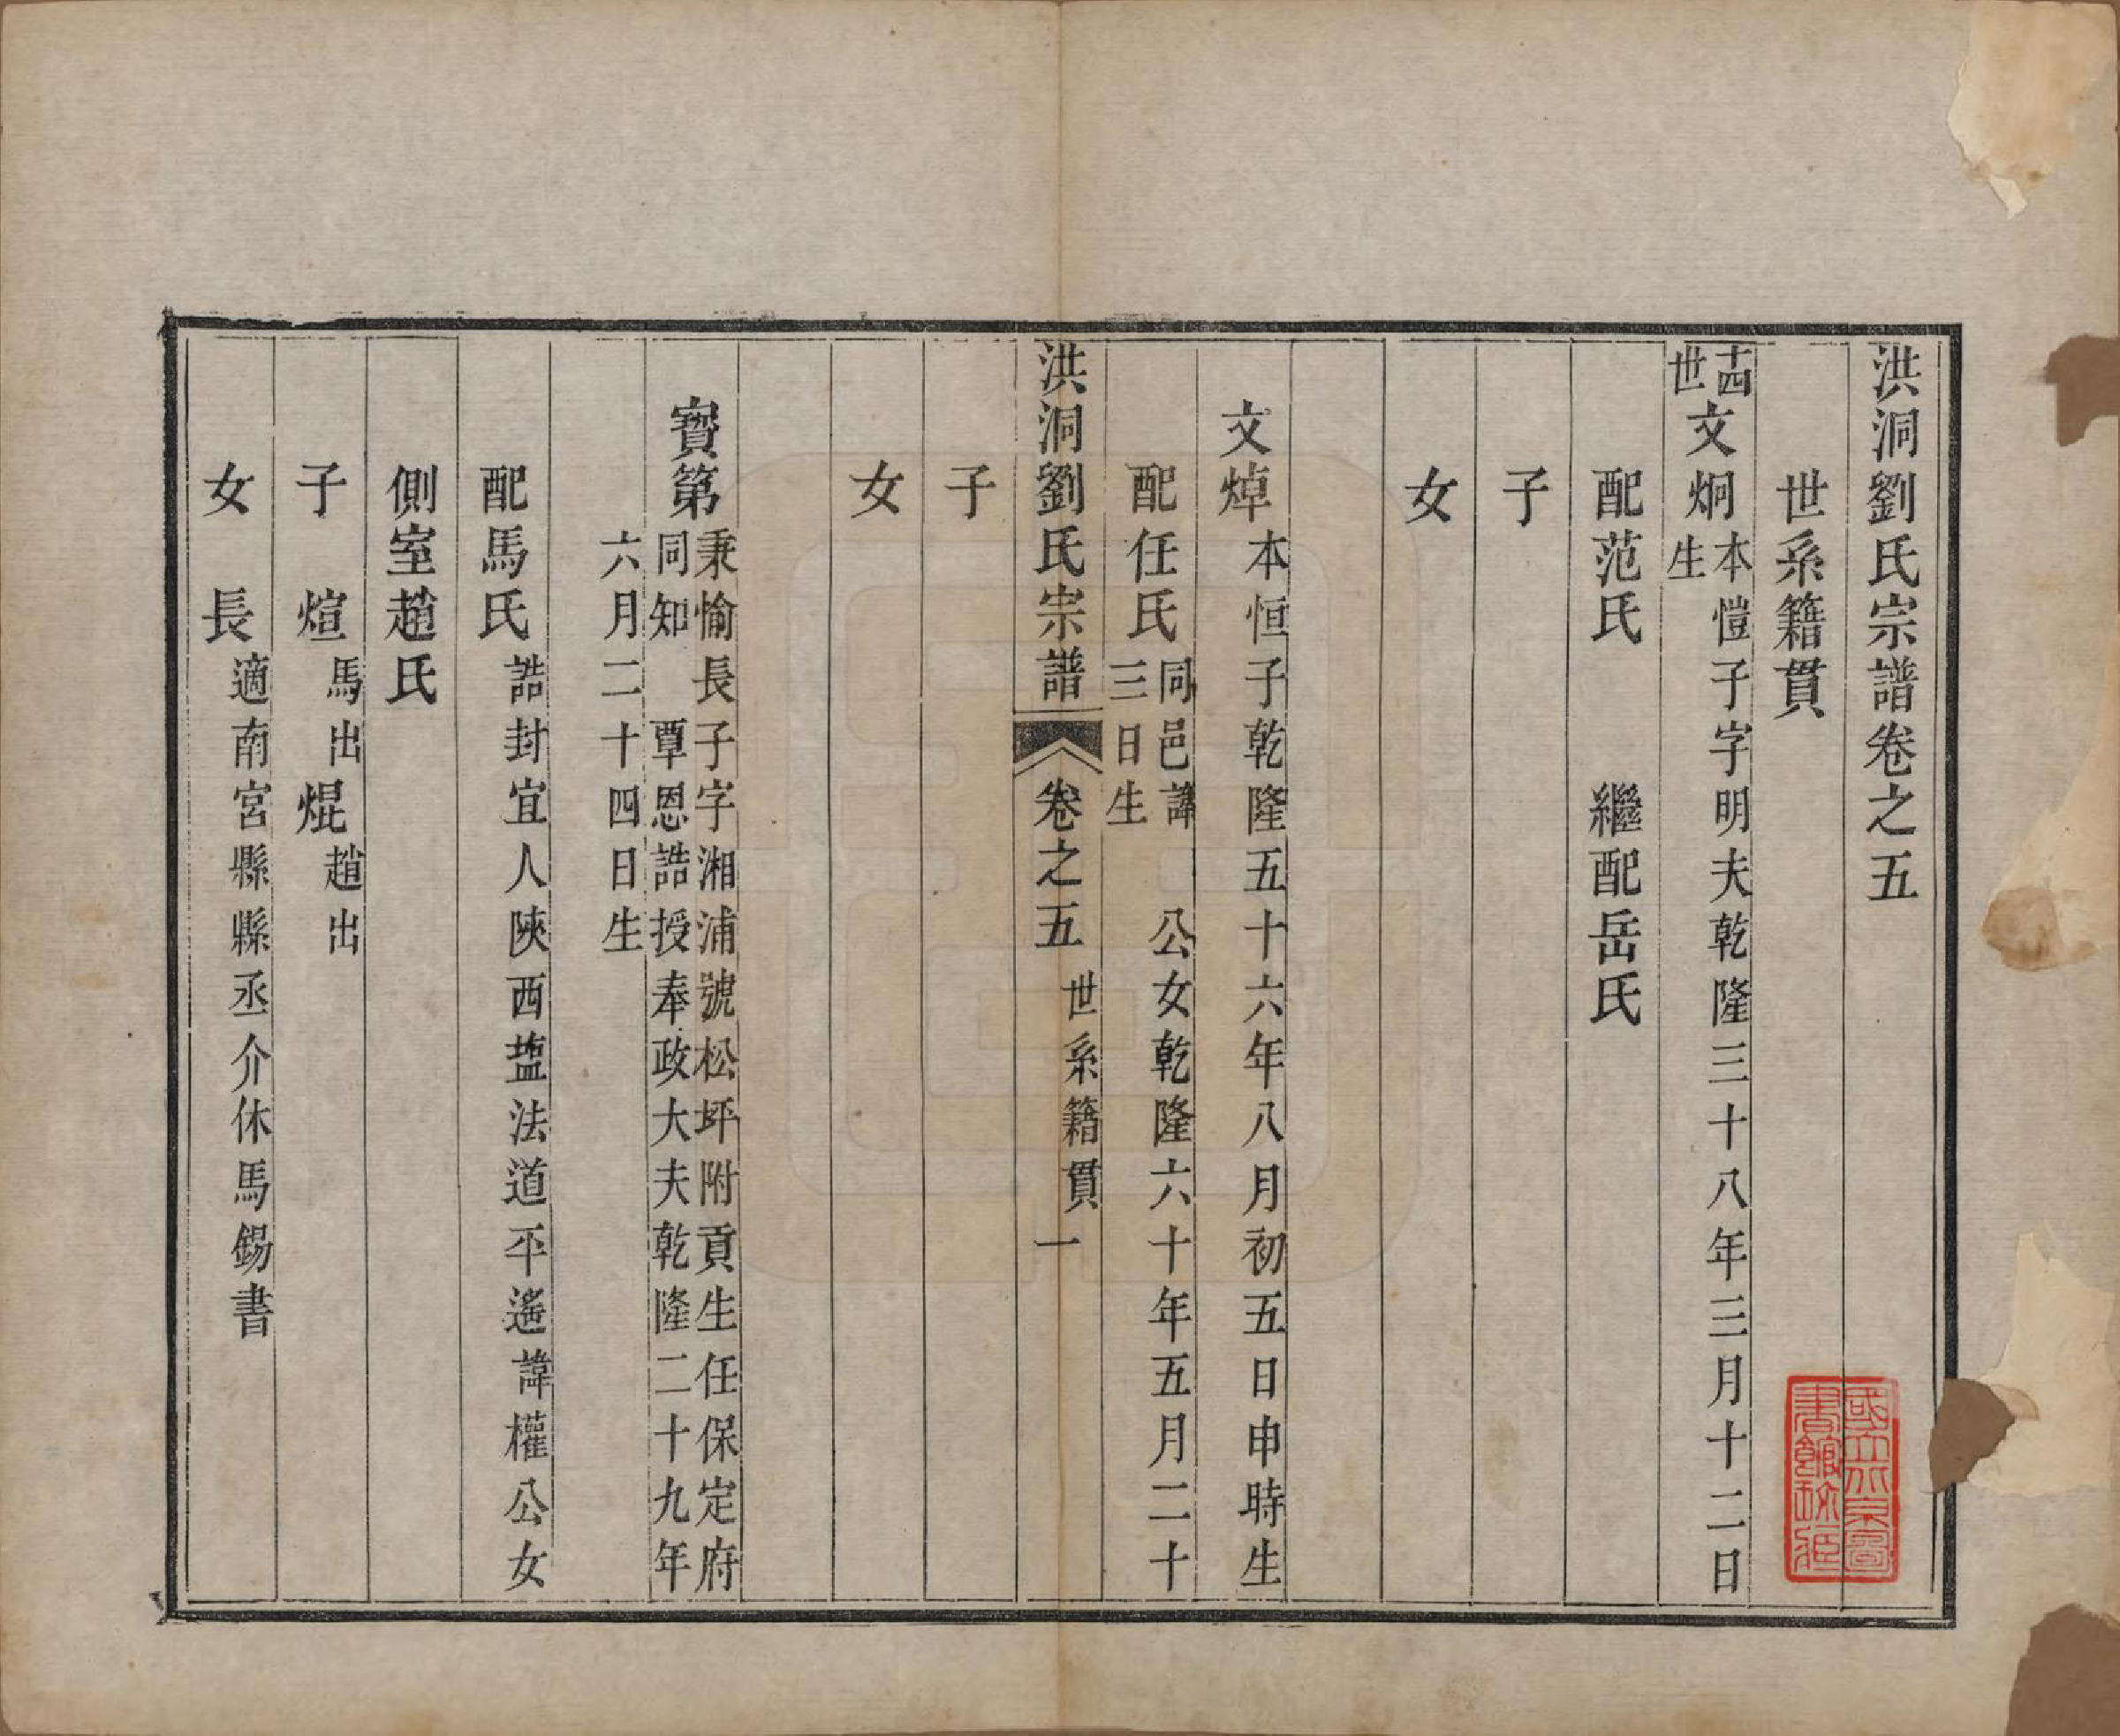 洪洞劉氏宗譜卷之五
世系籍貫
十四世 文炯 本愷子字明夫乾隆三十八年三月十二日生
配范氏　繼配岳氏
子
女
文焯 本恒子乾隆五十六年八月初五日申時生
配任氏 同邑諱　公女乾隆六十年五月二十三日生
洪洞劉氏宗譜 卷之五 世系籍貫 一
子
女
寶第 秉愉長子字湘浦號松坪附貢生任保定府同知　覃恩誥授奉政大夫乾隆二十九年
六月二十四日生
配馬氏 誥封宜人陝西鹽法道平遙諱權公女
側室趙氏
子　煊 馬出 焜 趙出
女　長 適南宮縣縣丞介休馬錫書
國立北京圖書館珍藏